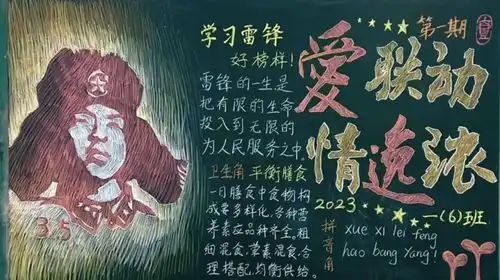 学习雷锋
好榜样!
雷锋的一生是
把有限的生命
投入到无限的
为人民服务之中。
卫生角 平衡膳食
一日膳食中食物构
成要多样化,各种营
养素应品种齐全,粗
细混食,荤素混食,合
理搭配,均衡供给。
第一期
爱联动
情逸浓
2023
一(6)班
拼音角
xue xi lei feng
hao bang yang!
3.5